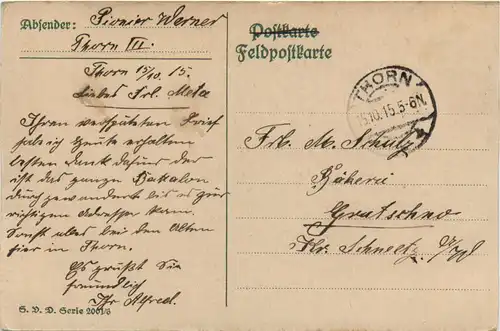 Absender: Pionier Werner
Thorn III.
Thorn 15/10. 15.
Liebes Frl. Meta
Ihren verspäteten Brief
habe ich heute erhalten
besten Dank dafür der
ist das ganze Batalon
durchgewandert bis er zur
richtigen Adresse kam.
Sonst alles bei den Alten
hier in Thorn.
Es grüßt Sie
freundlich
Ihr Alfred.
S. V. D. Serie 2001/3
Postkarte
Feldpostkarte
THORN
15.10.15.5-6N.
Frl. M. Schulz
Bäkerei
Gratschno
Kr. Schwetz